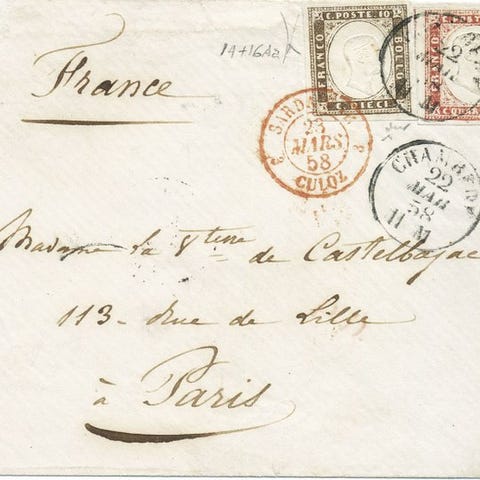 14+16A2
C. POSTE. 10
FRANCO
BOLLO
C. DIECI
C. POSTE
FRANCO
22
MAR
France
SARD.
23
MARS
58
CULOZ
CHAMBERY
22
MAR
58
11 M
Madame la Vtesse de Castelbajac
113 - Rue de Lille
à Paris